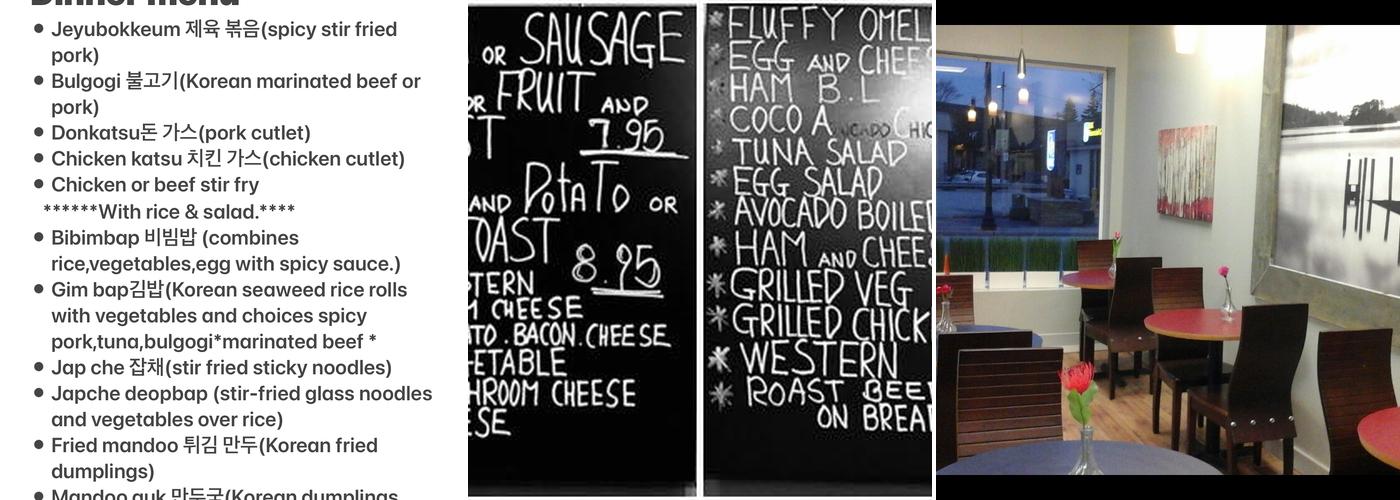 Dinner menu
Jeyubokkeum 제육 볶음(spicy stir fried
pork)
Bulgogi 불고기(Korean marinated beef or
pork)
Donkatsu돈 가스(pork cutlet)
Chicken katsu 치킨 가스(chicken cutlet)
Chicken or beef stir fry
******With rice & salad.****
Bibimbap 비빔밥 (combines
rice,vegetables,egg with spicy sauce.)
Gim bap김밥(Korean seaweed rice rolls
with vegetables and choices spicy
pork,tuna,bulgogi*marinated beef *
Jap che 잡채(stir fried sticky noodles)
Japche deopbap (stir-fried glass noodles
and vegetables over rice)
Fried mandoo 튀김 만두(Korean fried
dumplings)
Mandoo guk 만두국(Korean dumplings
OR SAUSAGE
OR FRUIT AND
T 7.95
AND PotaTo OR
OAST
8.95
TERN
M CHEESE
TO.BACON.CHEESE
ETABLE
HROOM CHEESE
ESE
FLUFFY OMEL
EGG AND CHEES
HAM B.L
COCO A
TUNA SALAD
EGG SALAD
AVOCADO BOILED
HAM AND CHEES
GRILLED VEG
GRILLED CHICK
WESTERN
ROAST BEEF
ON BREA